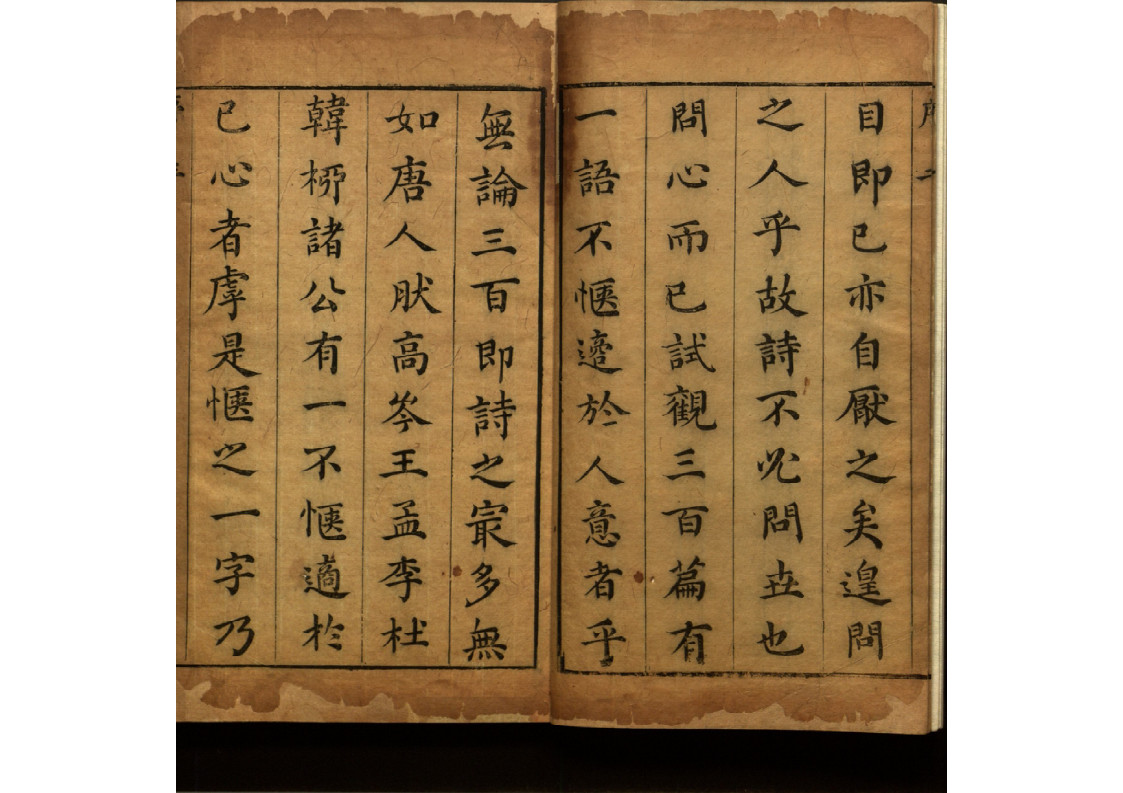 目即已亦自厭之矣遑問
之人乎故詩不必問卋也
問心而已試觀三百篇有
一語不愜於人意者乎
無論三百即詩之㝡多無
如唐人肰高岑王孟李杜
韓栁諸公有一不愜適於
已心者虖是愜之一字乃